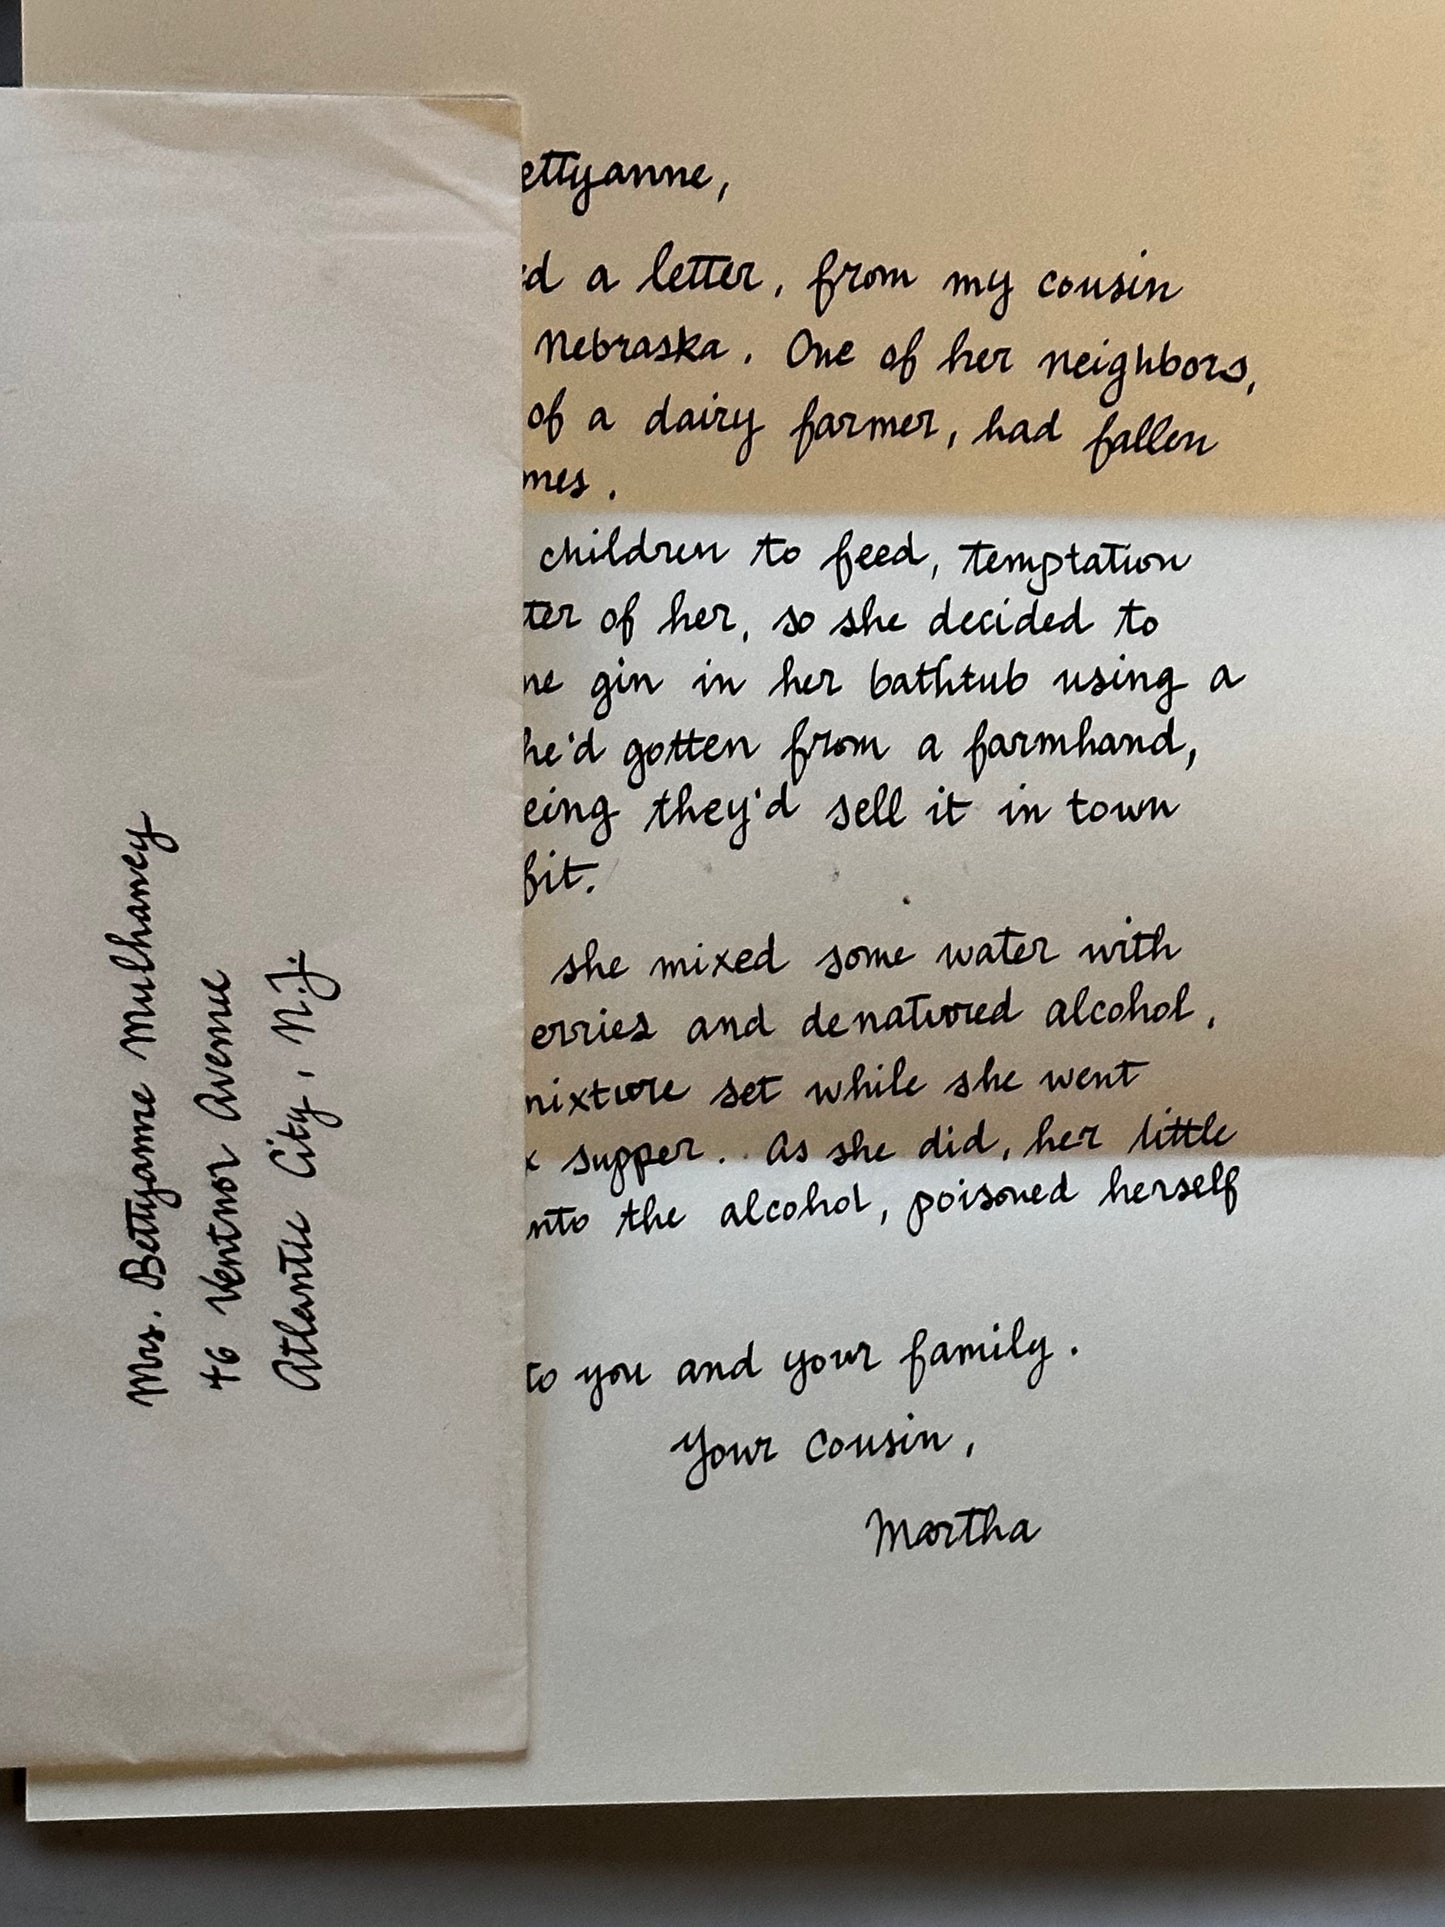 Mrs. Bettyanne Mulhaney
46 Ventnor Avenue
Atlantic City, N.J.
ettyanne,
ed a letter, from my cousin
Nebraska. One of her neighbors,
of a dairy farmer, had fallen
mes.
children to feed, temptation
ter of her, so she decided to
me gin in her bathtub using a
he'd gotten from a farmhand,
eing they'd sell it in town
fit.
she mixed some water with
erries and denatured alcohol,
mixture set while she went
x supper. As she did, her little
nto the alcohol, poisoned herself
to you and your family.
Your cousin,
Martha